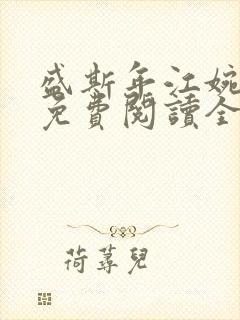 盛斯年江婉
免費閱讀全
荷蕁兒